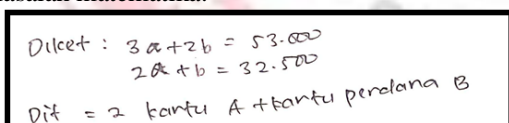 Diket : 3a+2b = 53.000
2a + b = 32.500
Dit = 2 kartu A + kartu perdana B